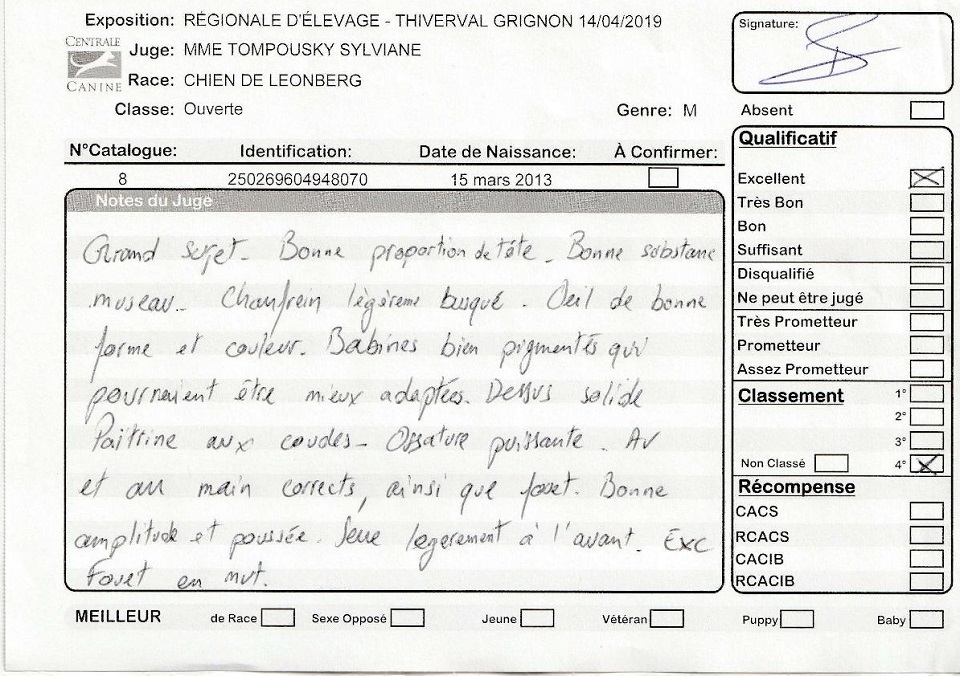 Exposition: RÉGIONALE D'ÉLEVAGE - THIVERVAL GRIGNON 14/04/2019
CENTRALE CANINE
Juge: MME TOMPOUSKY SYLVIANE
Race: CHIEN DE LEONBERG
Classe: Ouverte Genre: M
Signature:
Absent
N°Catalogue: Identification: Date de Naissance: À Confirmer:
8 250269604948070 15 mars 2013
Notes du Juge
Grand sujet. Bonne proportion de tête. Bonne substanc
museau.. Chanfrein légèreme busqué. Oeil de bonne
forme et couleur. Babines bien pigmentés qui
pourraient être mieux adaptées. Dessus solide
Poitrine aux coudes - Ossature puissante. Av
et au main corrects, ainsi que fouet. Bonne
amplitude et poussée. Serre legerement à l'avant. Exc
Fouet en mvt.
Qualificatif
Excellent
Très Bon
Bon
Suffisant
Disqualifié
Ne peut être jugé
Très Prometteur
Prometteur
Assez Prometteur
Classement 1°
2°
3°
Non Classé 4°
Récompense
CACS
RCACS
CACIB
RCACIB
MEILLEUR de Race Sexe Opposé Jeune Vétéran Puppy Baby